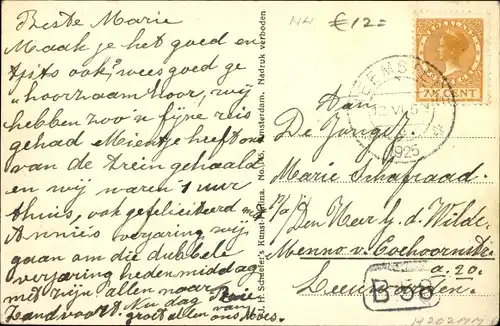 Beste Marie
Maak je het goed en
Fjits ook, wees goed ge
"hoorzaam hoor, wij
hebben zoo'n fijne reis
gehad Mientje heeft ons
van de trein gehaald
en wij waren 1 uur
thuis, ook gefeliciteerd met
Annie's verjaring wij
gaan om die dubbele
verjaring hedenmiddag
met zijn allen naar
Zandvoort. Nu dag
groet allen van ons Moes.
J. H. Schaefer's Kunst Amsterdam. Nadruk verboden
NH €12=
7½ CENT
HEEMSTEDE
1925
Aan
De Jongej.
Marie Schafraad.
p/a/ Den Heer h. d. Wilde.
Menno v. Coehoornstr.
a. 20.
Leeuwarden.
B 58